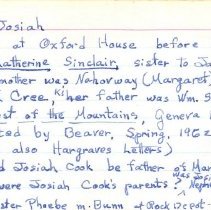 Josiah
at Oxford House before
Katherine Sinclair, sister to Ja
mother was Nahovway (Margaret)
Cree, her father was Wm. S
st of the Mountains, Geneva
ted by Beaver, Spring, 1962
also Hargraves Letters)
d Josiah Cook be father of Mar
were Josiah Cook's parents?
ster Phoebe m. Bunn + Rock Depot -